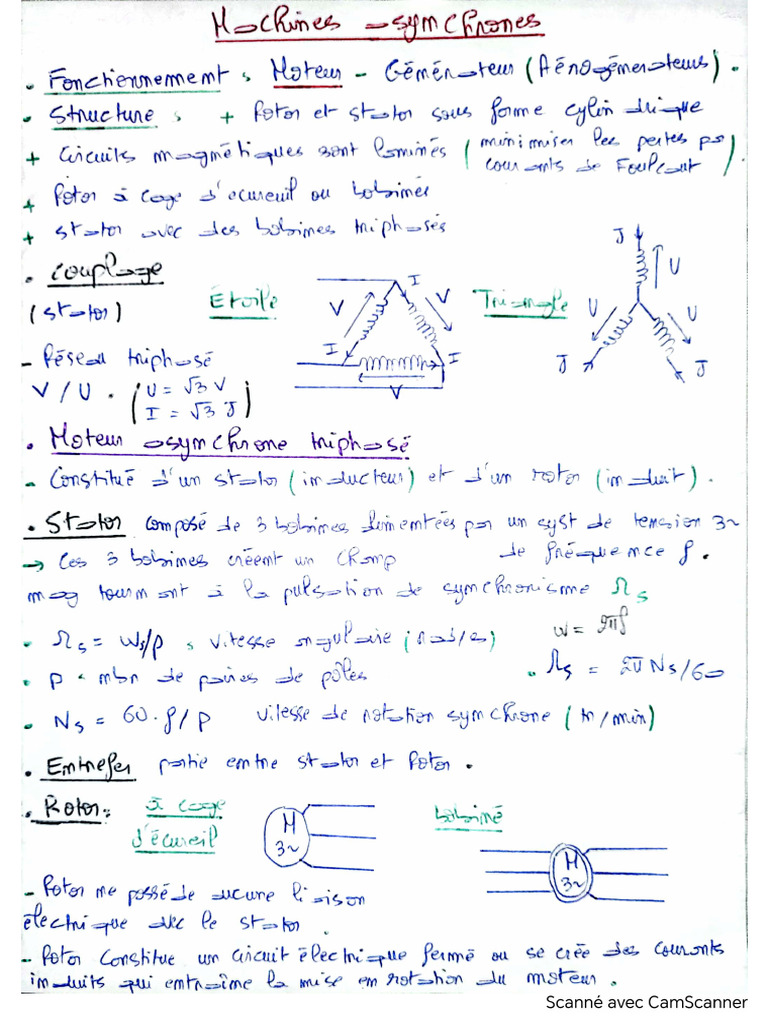 Machines asynchrones
. Fonctiennement : Moteur - Générateur (Aérogénérateurs).
. Structure : + Rotor et stator sous forme cylindrique
+ Circuits magnétiques sont laminés (minimiser les pertes par
courants de Foulcaut)
+ Rotor à cage d'écureuil ou bobinés
+ stator avec des bobines triphasés
. Couplage
(stator)
Étoile
V I V
I I
V
Triangle
J U
U U
J J
- Réseau triphasé
V / U . (U = √3 V
I = √3 J)
. Moteur asynchrone triphasé
- Constitué d'un stator (inducteur) et d'un rotor (induit).
. Stator composé de 3 bobines alimentées par un syst de tension 3~
de fréquence f.
→ Ces 3 bobines créent un champ
mag tournant à la pulsation de synchronisme Ωs
- Ωs = ws/p : vitesse angulaire (rad/s)
w = 2πf
- p : nbr de paires de pôles
. Ωs = 2π Ns/60
- Ns = 60.f/p vitesse de rotation synchrone (tr/min)
. Entrefer partie entre stator et Rotor.
. Rotor:
à cage
d'écureil
M
3~
bobiné
M
3~
- Rotor ne posséde aucune liaison
électrique avec le stator.
- Rotor constitue un circuit électrique fermé ou se crée des courants
induits qui entraîne la mise en rotation du moteur.
Scanné avec CamScanner